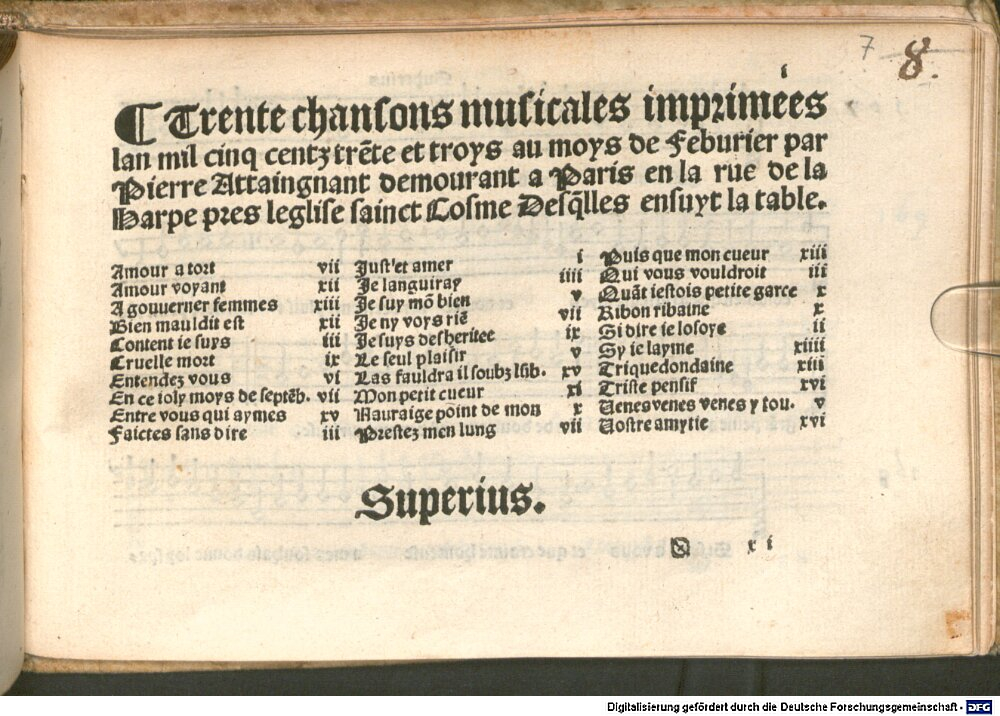 7 8.
i
¶ Trente chansons musicales imprimées
lan mil cinq centz trēte et troys au moys de Feburier par
Pierre Attaingnant demourant a Paris en la rue de la
Harpe pres leglise sainct Cosme Desq̄lles ensuyt la table.
Amour a tort vii
Amour voyant xii
A gouuerner femmes xiii
Bien mauldit est xii
Content ie suys iii
Cruelle mort ix
Entendez vous vi
En ce ioly moys de septēb. vii
Entre vous qui aymes xv
Faictes sans dire iii
Just'et amer i
Je languiray iiii
Je suy mō bien v
Je ny voys riē vii
Je suys desheritee ix
Le seul plaisir v
Las fauldra il soubz xv
Mon petit cueur xi
Mauraige point de mon x
Prestez men lung vii
Puis que mon cueur xiii
Qui vous vouldroit iii
Quāt iestois petite garce x
Ribon ribaine x
Si dire ie losoye ii
Sy ie layme xiiii
Triquedondaine xiii
Triste pensif xvi
Venes venes venes y tou. v
Vostre amytie xvi
Superius.
xi
Digitalisierung gefördert durch die Deutsche Forschungsgemeinschaft - DFG